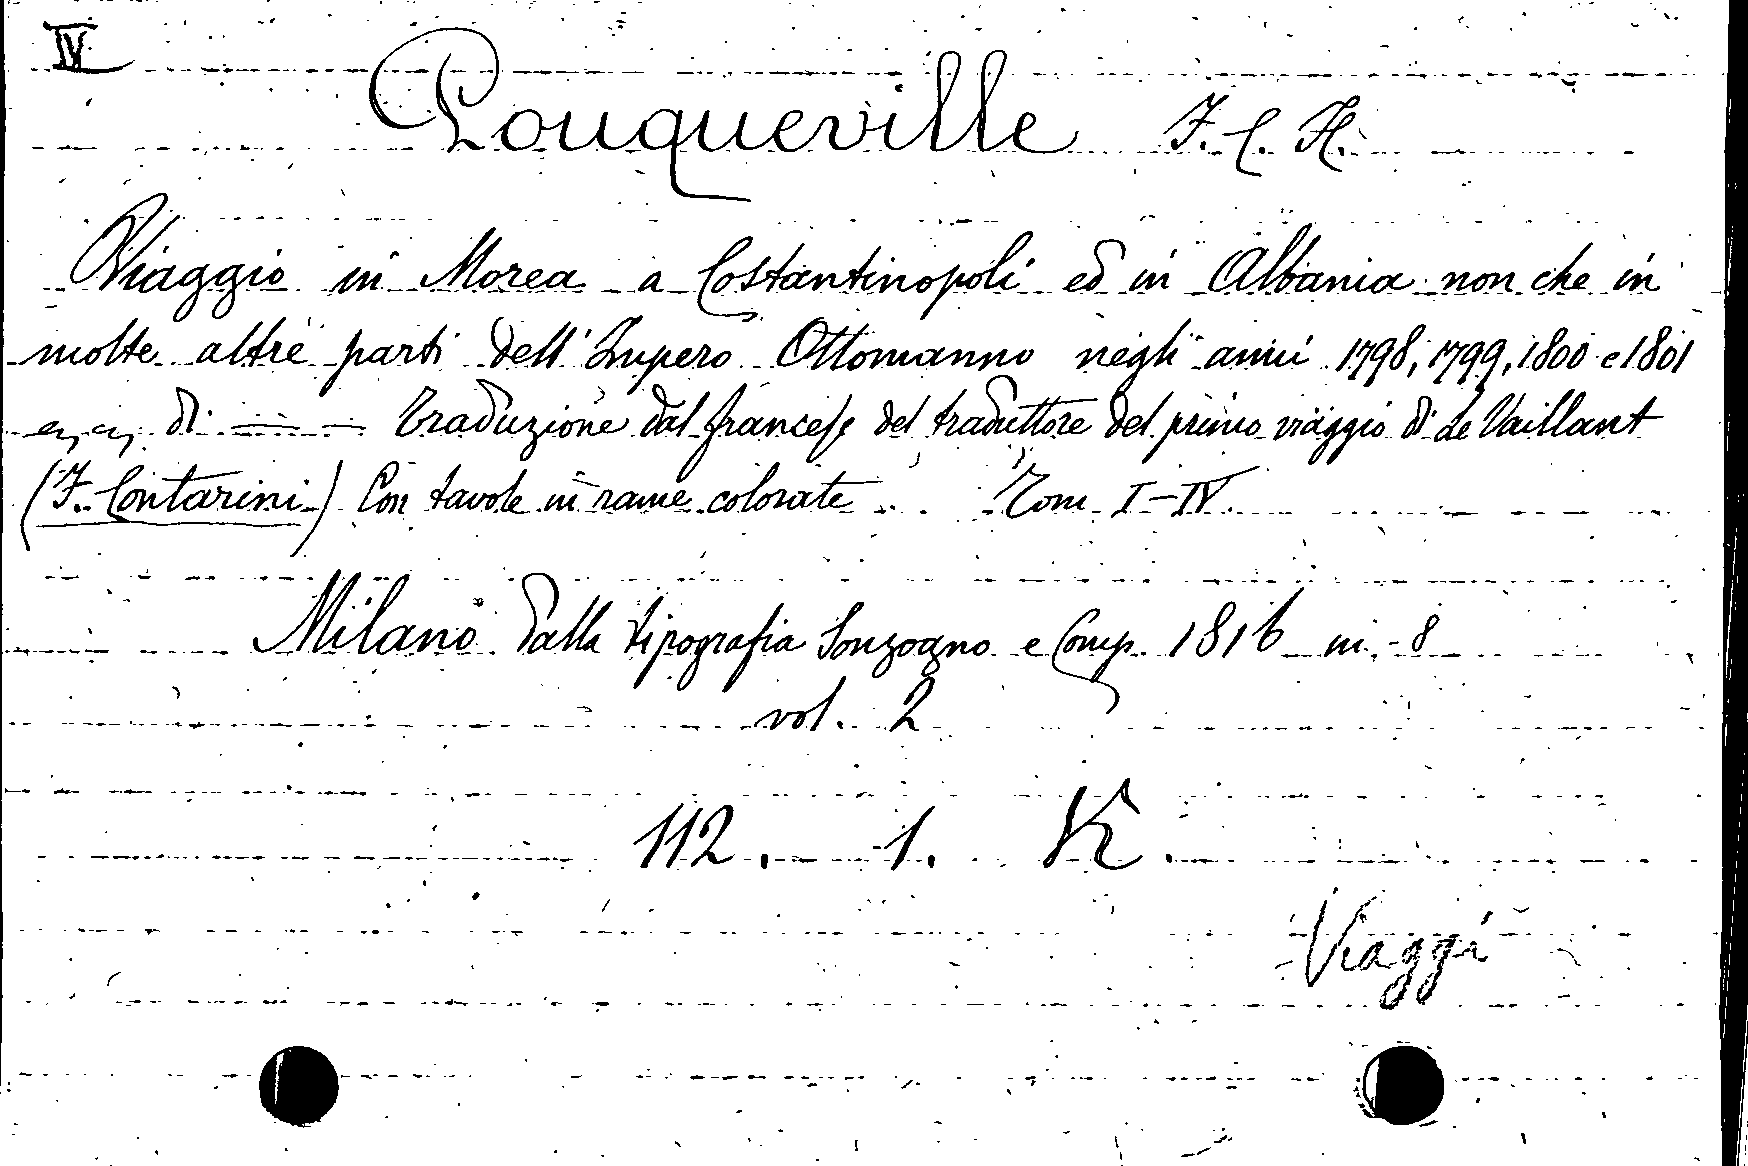 IV
Pouqueville F. C. H.
Viaggio in Morea a Costantinopoli ed in Albania non che in
molte altre parti dell'Impero Ottomanno negli anni 1798, 1799, 1800 e 1801
ec, ec, di — — Traduzione dal francese del traduttore del primo viaggio di de Vaillant
(F. Contarini) Con tavole in rame colorate. Tom. I-IV.
Milano dalla tipografia Sonzogno e Comp. 1816 in-8
vol. 2
112. 1. K.
Viaggi